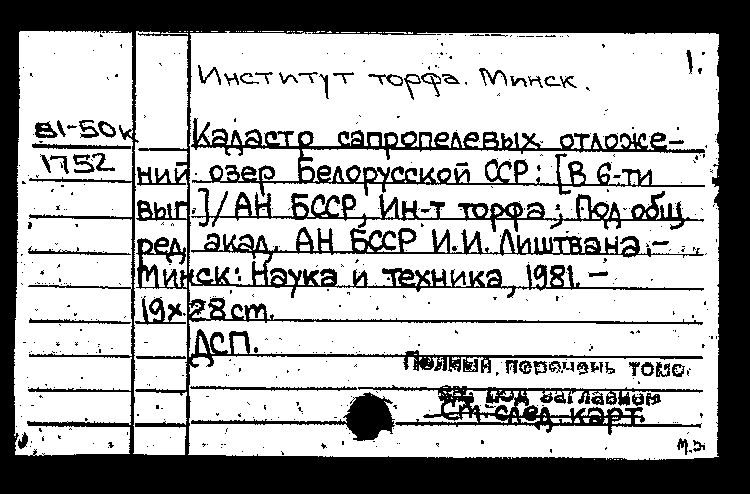 1.
Институт торфа. Минск.
81-50к
1752
Кадастр сапропелевых отложе-
ний озер Белорусской ССР: [В 6-ти
вып.]/АН БССР, Ин-т торфа; Под общ.
ред. акад. АН БССР И.И. Лиштвана.-
Минск: Наука и техника, 1981. –
19х28 cm.
ДСП.
Полный перечень томов
см. под заглавием
См. след. карт.
М.Э.